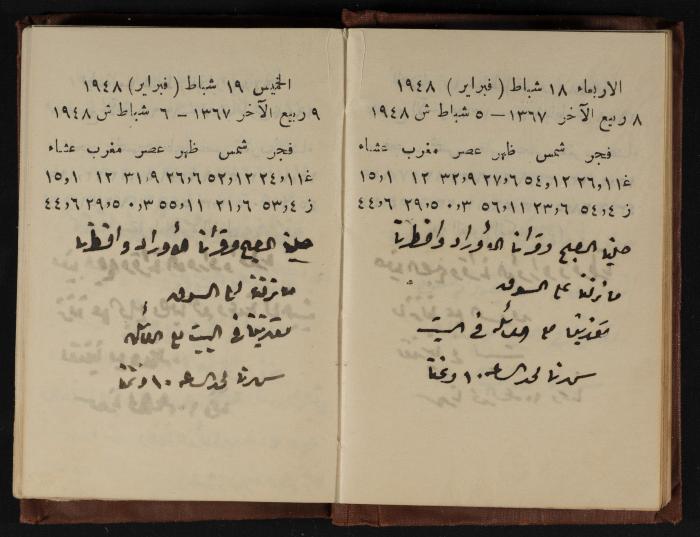 الاربعاء ١٨ شباط ( فبراير ) ١٩٤٨
٨ ربيع الآخر ١٣٦٧ – ٥ شباط ش ١٩٤٨
فجر شمس ظهر عصر مغرب عشاء
غ ١١و٢٦ ١٢و٥٤ ٦و٢٧ ٩و٣٢ ١٢ ١و١٥
ز ٤و٥٤ ٦و٢٣ ١١و٥٦ ٣و٠ ٥و٢٩ ٦و٤٤
صلينا الصبح وقرأنا الأوراد وافطرنا
ما نزلنا على السوق
تغدينا مع العائلة في البيت
سهرنا لحد الساعة ١٠ ونمنا
الخميس ١٩ شباط ( فبراير ) ١٩٤٨
٩ ربيع الآخر ١٣٦٧ – ٦ شباط ش ١٩٤٨
فجر شمس ظهر عصر مغرب عشاء
غ ١١و٢٤ ١٢و٥٢ ٦و٢٦ ٩و٣١ ١٢ ١و١٥
ز ٤و٥٣ ٦و٢١ ١١و٥٥ ٣و٠ ٥و٢٩ ٦و٤٤
صلينا الصبح وقرأنا الأوراد وافطرنا
ما نزلنا السوق
تغدينا في البيت مع العائلة
سهرنا لحد الساعة ١٠ ونمنا